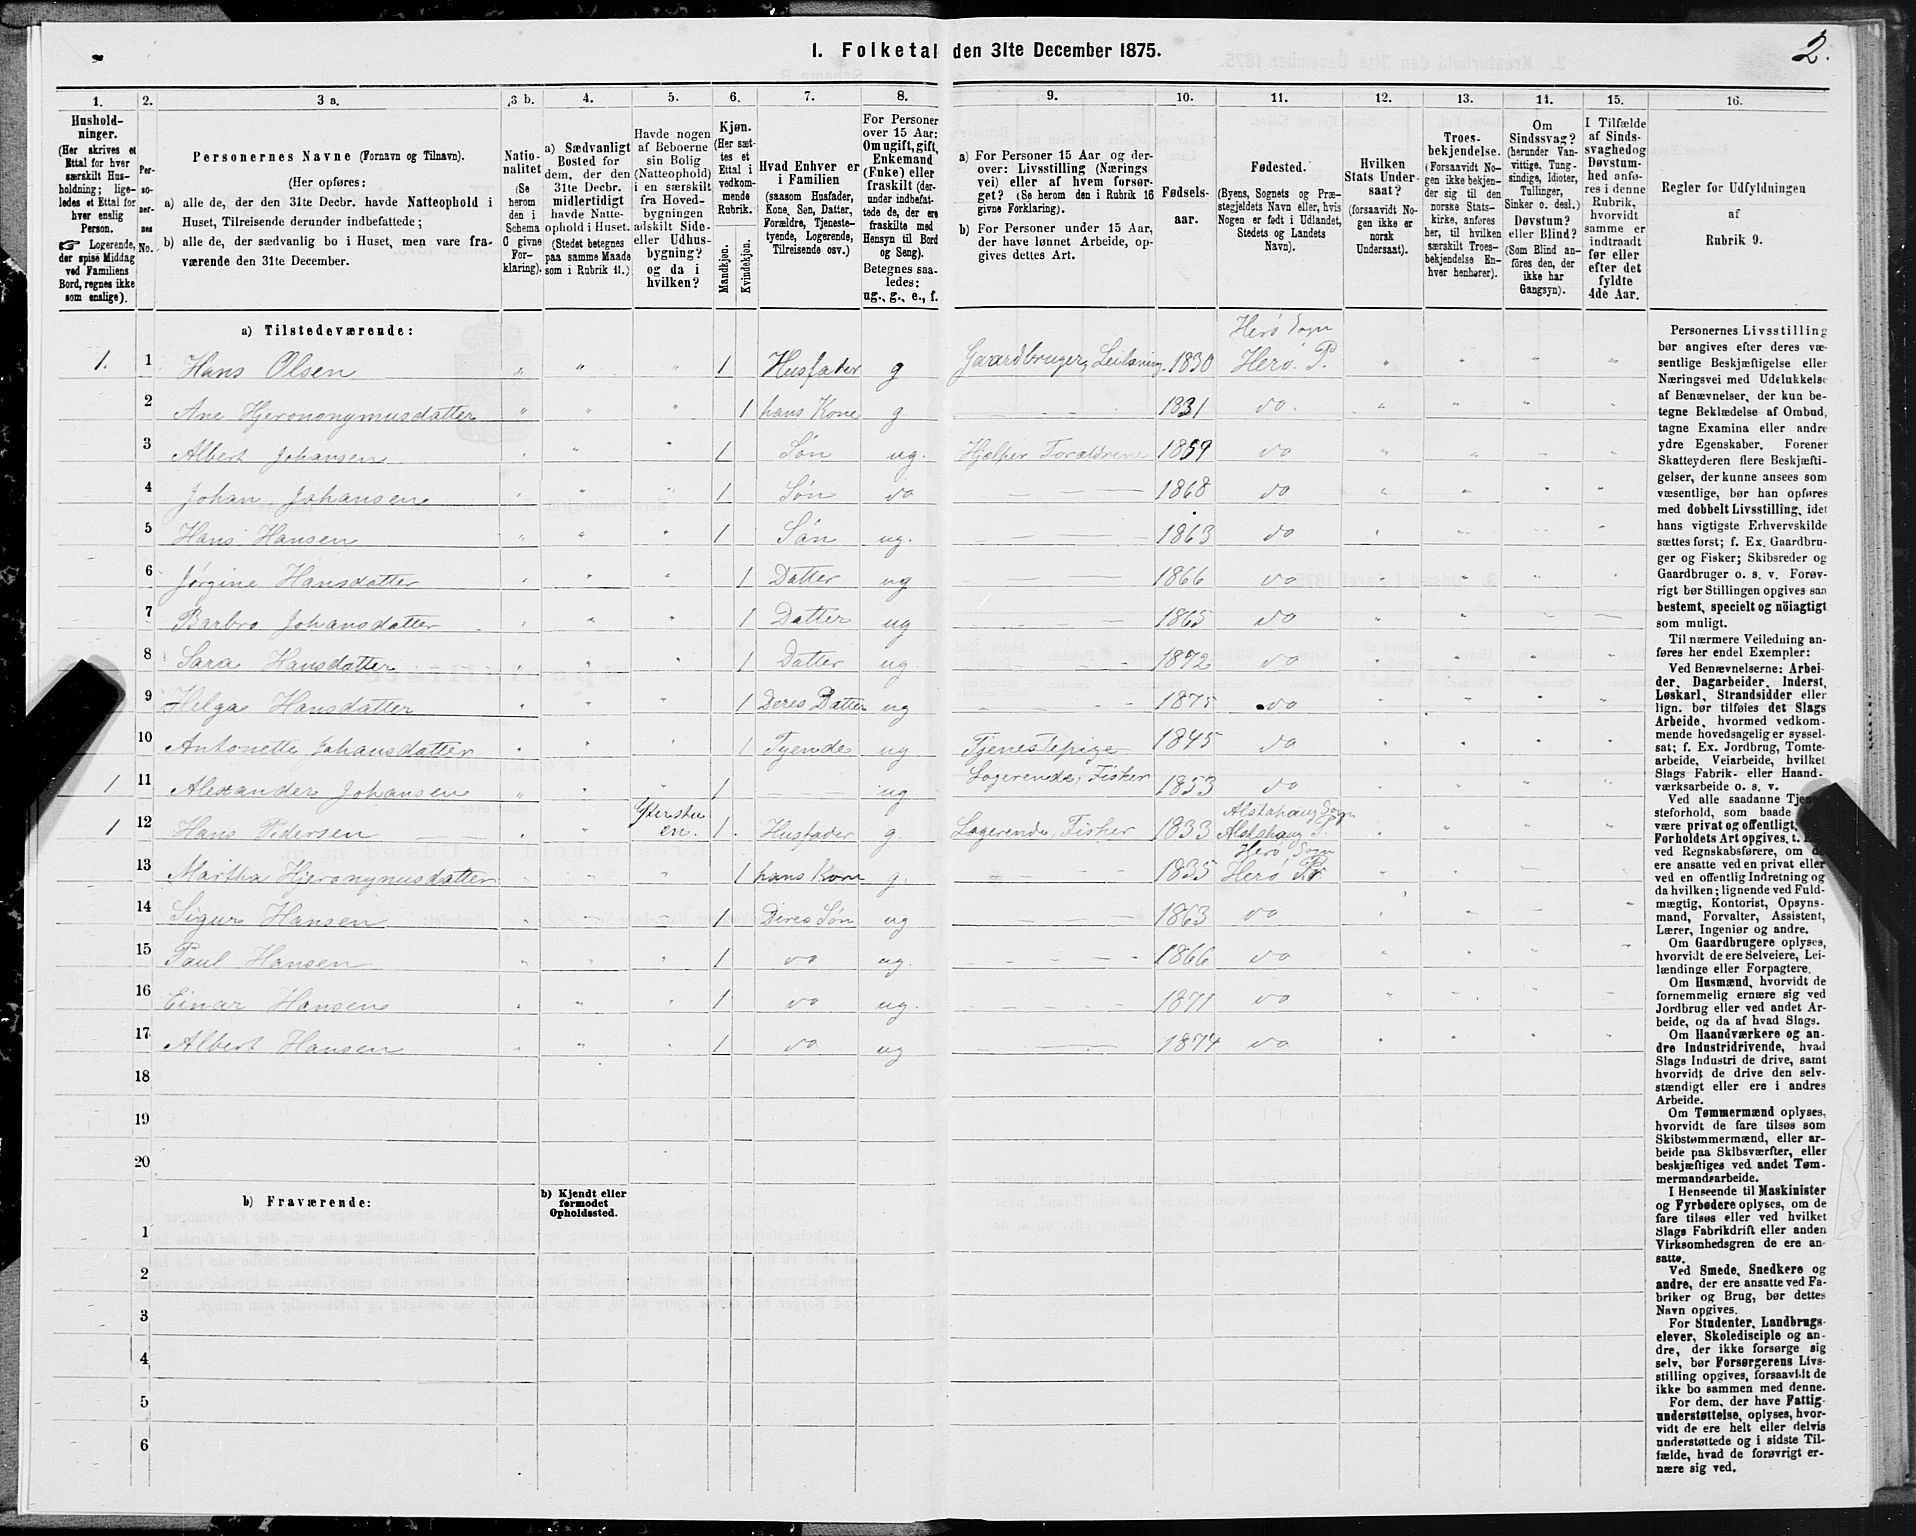 I. Folketal den 31te December 1875.
2.
1.
2.
3 a.
3 b.
4.
5.
6.
7.
8.
9.
10.
11.
12.
13.
14.
15.
16.
Hushold-
ninger.
(Her skrives et
Ettal for hver
særskilt Hus-
holdning; lige-
ledes et Ettal for
hver enslig
Person.
☞ Logerende,
der spise Middag
ved Familiens
Bord, regnes ikke
som enslige).
Per-
so-
ner-
nes
No.
Personernes Navne (Fornavn og Tilnavn).
(Her opføres:
a) alle de, der den 31te Decbr. havde Natteophold i
Huset, Tilreisende derunder indbefattede;
b) alle de, der sædvanlig bo i Huset, men vare fra-
værende den 31te December.
Natio-
nalitet
(Se
herom
den i
Schema
O givne
For-
klaring).
a) Sædvanligt
Bosted for
dem, der den
31te Decbr.
midlertidigt
havde Natte-
ophold i Huset.
(Stedet betegnes
paa samme Maade
som i Rubrik 11.)
Havde nogen
af Beboerne
sin Bolig
(Natteophold)
i en særskilt
fra Hoved-
bygningen
adskilt Side-
eller Udhus-
bygning?
og da i
hvilken?
Kjøn.
(Her sæt-
tes et
Ettal i
vedkom-
mende
Rubrik.
Mandkjøn.
Kvindekjøn.
Hvad Enhver er
i Familien
(saasom Husfader,
Kone, Søn, Datter,
Forældre, Tjeneste-
tyende, Logerende,
Tilreisende osv.)
For Personer
over 15 Aar:
Om ugift, gift,
Enkemand
(Enke) eller
fraskilt (der-
under indbefat-
tede de, der ere
fraskilte med
Hensyn til Bord
og Seng).
Betegnes saa-
ledes:
ug., g., e., f.
a) For Personer 15 Aar og der-
over: Livsstilling (Nærings
vei) eller af hvem forsør-
get? (Se herom den i Rubrik 16
givne Forklaring).
b) For Personer under 15 Aar,
der have lønnet Arbeide, op-
gives dettes Art.
Fødsels-
aar.
Fødested.
(Byens, Sognets og Præ-
stegjeldets Navn eller, hvis
Nogen er født i Udlandet,
Stedets og Landets
Navn).
Hvilken
Stats Under-
saat?
(forsaavidt No-
gen ikke er
norsk
Undersaat).
Troes-
bekjendelse.
(Forsaavidt No-
gen ikke bekjen-
der sig til den
norske Stats-
kirke, anføres
her, til hvilken
særskilt Troes-
bekjendelse En-
hver henhører).
Om
Sindssvag?
(herunder Van-
vittige, Tung-
sindige, Idioter,
Tullinger,
Sinker o. desl.)
Døvstum?
eller Blind?
(Som Blind an-
føres den, der
ikke har
Gangsyn).
I Tilfælde
af Sinds-
svaghedog
Døvstum-
hed anfø-
res i denne
Rubrik,
hvorvidt
samme er
indtraadt
før eller
efter det
fyldte
4de Aar.
Regler for Udfyldningen
af
Rubrik 9.
a) Tilstedeværende:
Herø Sogn
1. 1 Hans Olsen " " " 1 Husfader g Gaardbruger, Leilænding. 1830 Herø P. " " " "
2 Ane Hjerononymusdatter " " " 1 hans Kone g 1831 do. " " " "
3 Albert Johansen " " " 1 Søn ug. Hjelper Forældrene 1859 do " " " "
4 Johan Johansen " " " 1 Søn do 1868 do " " " "
5 Hans Hansen " " " 1 Søn ug. 1863 do " " " "
6 Jørgine Hansdatter " " " 1 Datter ug 1866 do " " " "
7 Barbro Johansdatter " " " 1 Datter ug 1865 do " " "
8 Sara Hansdatter " " " 1 Datter ug. 1872 do " " " "
9 Helga Hansdatter " " " 1 Deres Datter ug 1875 do " " " "
10 Antonette Johansdatter " " " 1 Tyende ug Tjenestepige 1845 do " " " "
1 11 Alexander Johansen " " " 1 ug Logerende, Fisker 1853 do " " " "
Yterstu Alstahaug Sogn
1 12 Hans Pedersen " " en. 1. Husfader g. Logerende, Fisker 1833 Alstahaug P. " " " "
Herø Sogn
13 Martha Hjeronymusdatter " " " 1 hans Kone g. 1835 Herø Pr " " " "
14 Sigur Hansen " " " 1 Deres Søn ug 1863 do " " " "
15 Paul Hansen " " " 1 do ug. 1866 do " " " "
16 Einar Hansen " " " 1 do ug. 1871 do " " " "
17 Albert Hansen " " " 1 do ug 1874 do " " " "
18
19
20
b) Fraværende:
b) Kjendt eller
formodet
Opholdssted.
1
2
3
4
5
6
Personernes Livsstilling
bør angives efter deres væ-
sentlige Beskjæftigelse eller
Næringsvei med Udelukkelse
af Benævnelser, der kun be-
tegne Beklædelse af Ombud,
tagne Examina eller andre
ydre Egenskaber. Forener
Skatteyderen flere Beskjæfti-
gelser, der kunne ansees som
væsentlige, bør han opføres
med dobbelt Livsstilling, idet
hans vigtigste Erhvervskilde
sættes først; f. Ex. Gaardbru-
ger og Fisker; Skibsreder og
Gaardbruger o. s. v. Forøv-
rigt bør Stillingen opgives saa
bestemt, specielt og nøiagtigt
som muligt.
Til nærmere Veiledning an-
føres her endel Exempler:
Ved Benævnelserne: Arbei-
der, Dagarbeider, Inderst,
Løskarl, Strandsidder eller
lign. bør tilføies det Slags
Arbeide, hvormed vedkom-
mende hovedsagelig er syssel-
sat; f. Ex. Jordbrug, Tomte-
arbeide, Veiarbeide, hvilket
Slags Fabrik- eller Haand-
værksarbeide o. s. v.
Ved alle saadanne
steforhold, som baade
være privat og offentligt,
Forholdets Art opgives, t.
ved Regnskabsførere, om
ere ansatte ved en privat eller
ved en offentlig Indretning og
da hvilken; lignende ved Fuld-
mægtig, Kontorist, Opsyns-
mand, Forvalter, Assistent,
Lærer, Ingeniør og andre.
Om Gaardbrugere oplyses,
hvorvidt de ere Selveiere, Lei-
lændinge eller Forpagtere.
Om Husmænd, hvorvidt de
fornemmelig ernære sig ved
Jordbrug eller ved andet Ar-
beide, og da af hvad Slags.
Om Haandværkere og an-
dre Industridrivende, hvad
Slags Industri de drive, samt
hvorvidt de drive den selv-
stændigt eller ere i andres
Arbeide.
Om Tømmermænd oplyses,
hvorvidt de fare tilsøs som
Skibstømmermænd, eller ar-
beide paa Skibsværfter, eller
beskjæftiges ved andet Tøm-
mermandsarbeide.
I Henseende til Maskinister
og Fyrbødere oplyses, om de
fare tilsøs eller ved hvilket
Slags Fabrikdrift eller anden
Virksomhedsgren de ere an-
satte.
Ved Smede, Snedkere og
andre, der ere ansatte ved Fa-
briker og Brug, bør dettes
Navn opgives.
For Studenter, Landbrugs-
elever, Skoledisciple og an-
dre, der ikke forsørge sig
selv, bør Forsørgerens Livs-
stilling opgives, forsaavidt de
ikke bo sammen med denne.
For dem, der have Fattig-
understøttelse, oplyses, hvor-
vidt de ere helt eller delvis
understøttede og i sidste Til-
fælde, hvad de forøvrigt er-
nære sig ved.